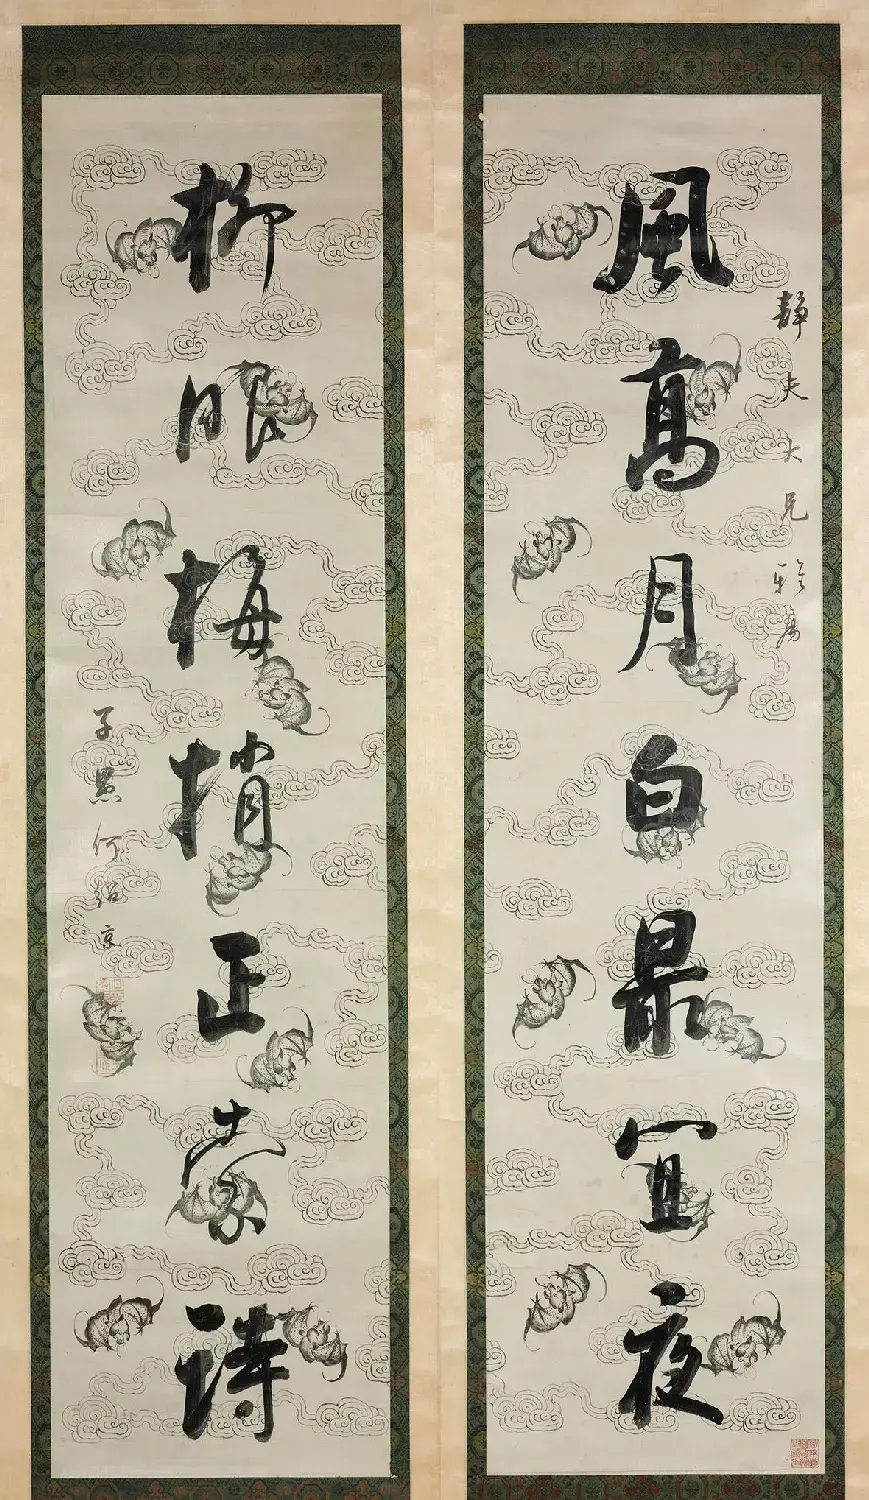 靜夫大兄雅屬
風高月白最宜夜
柳眼梅梢正索詩
子愚何紹京